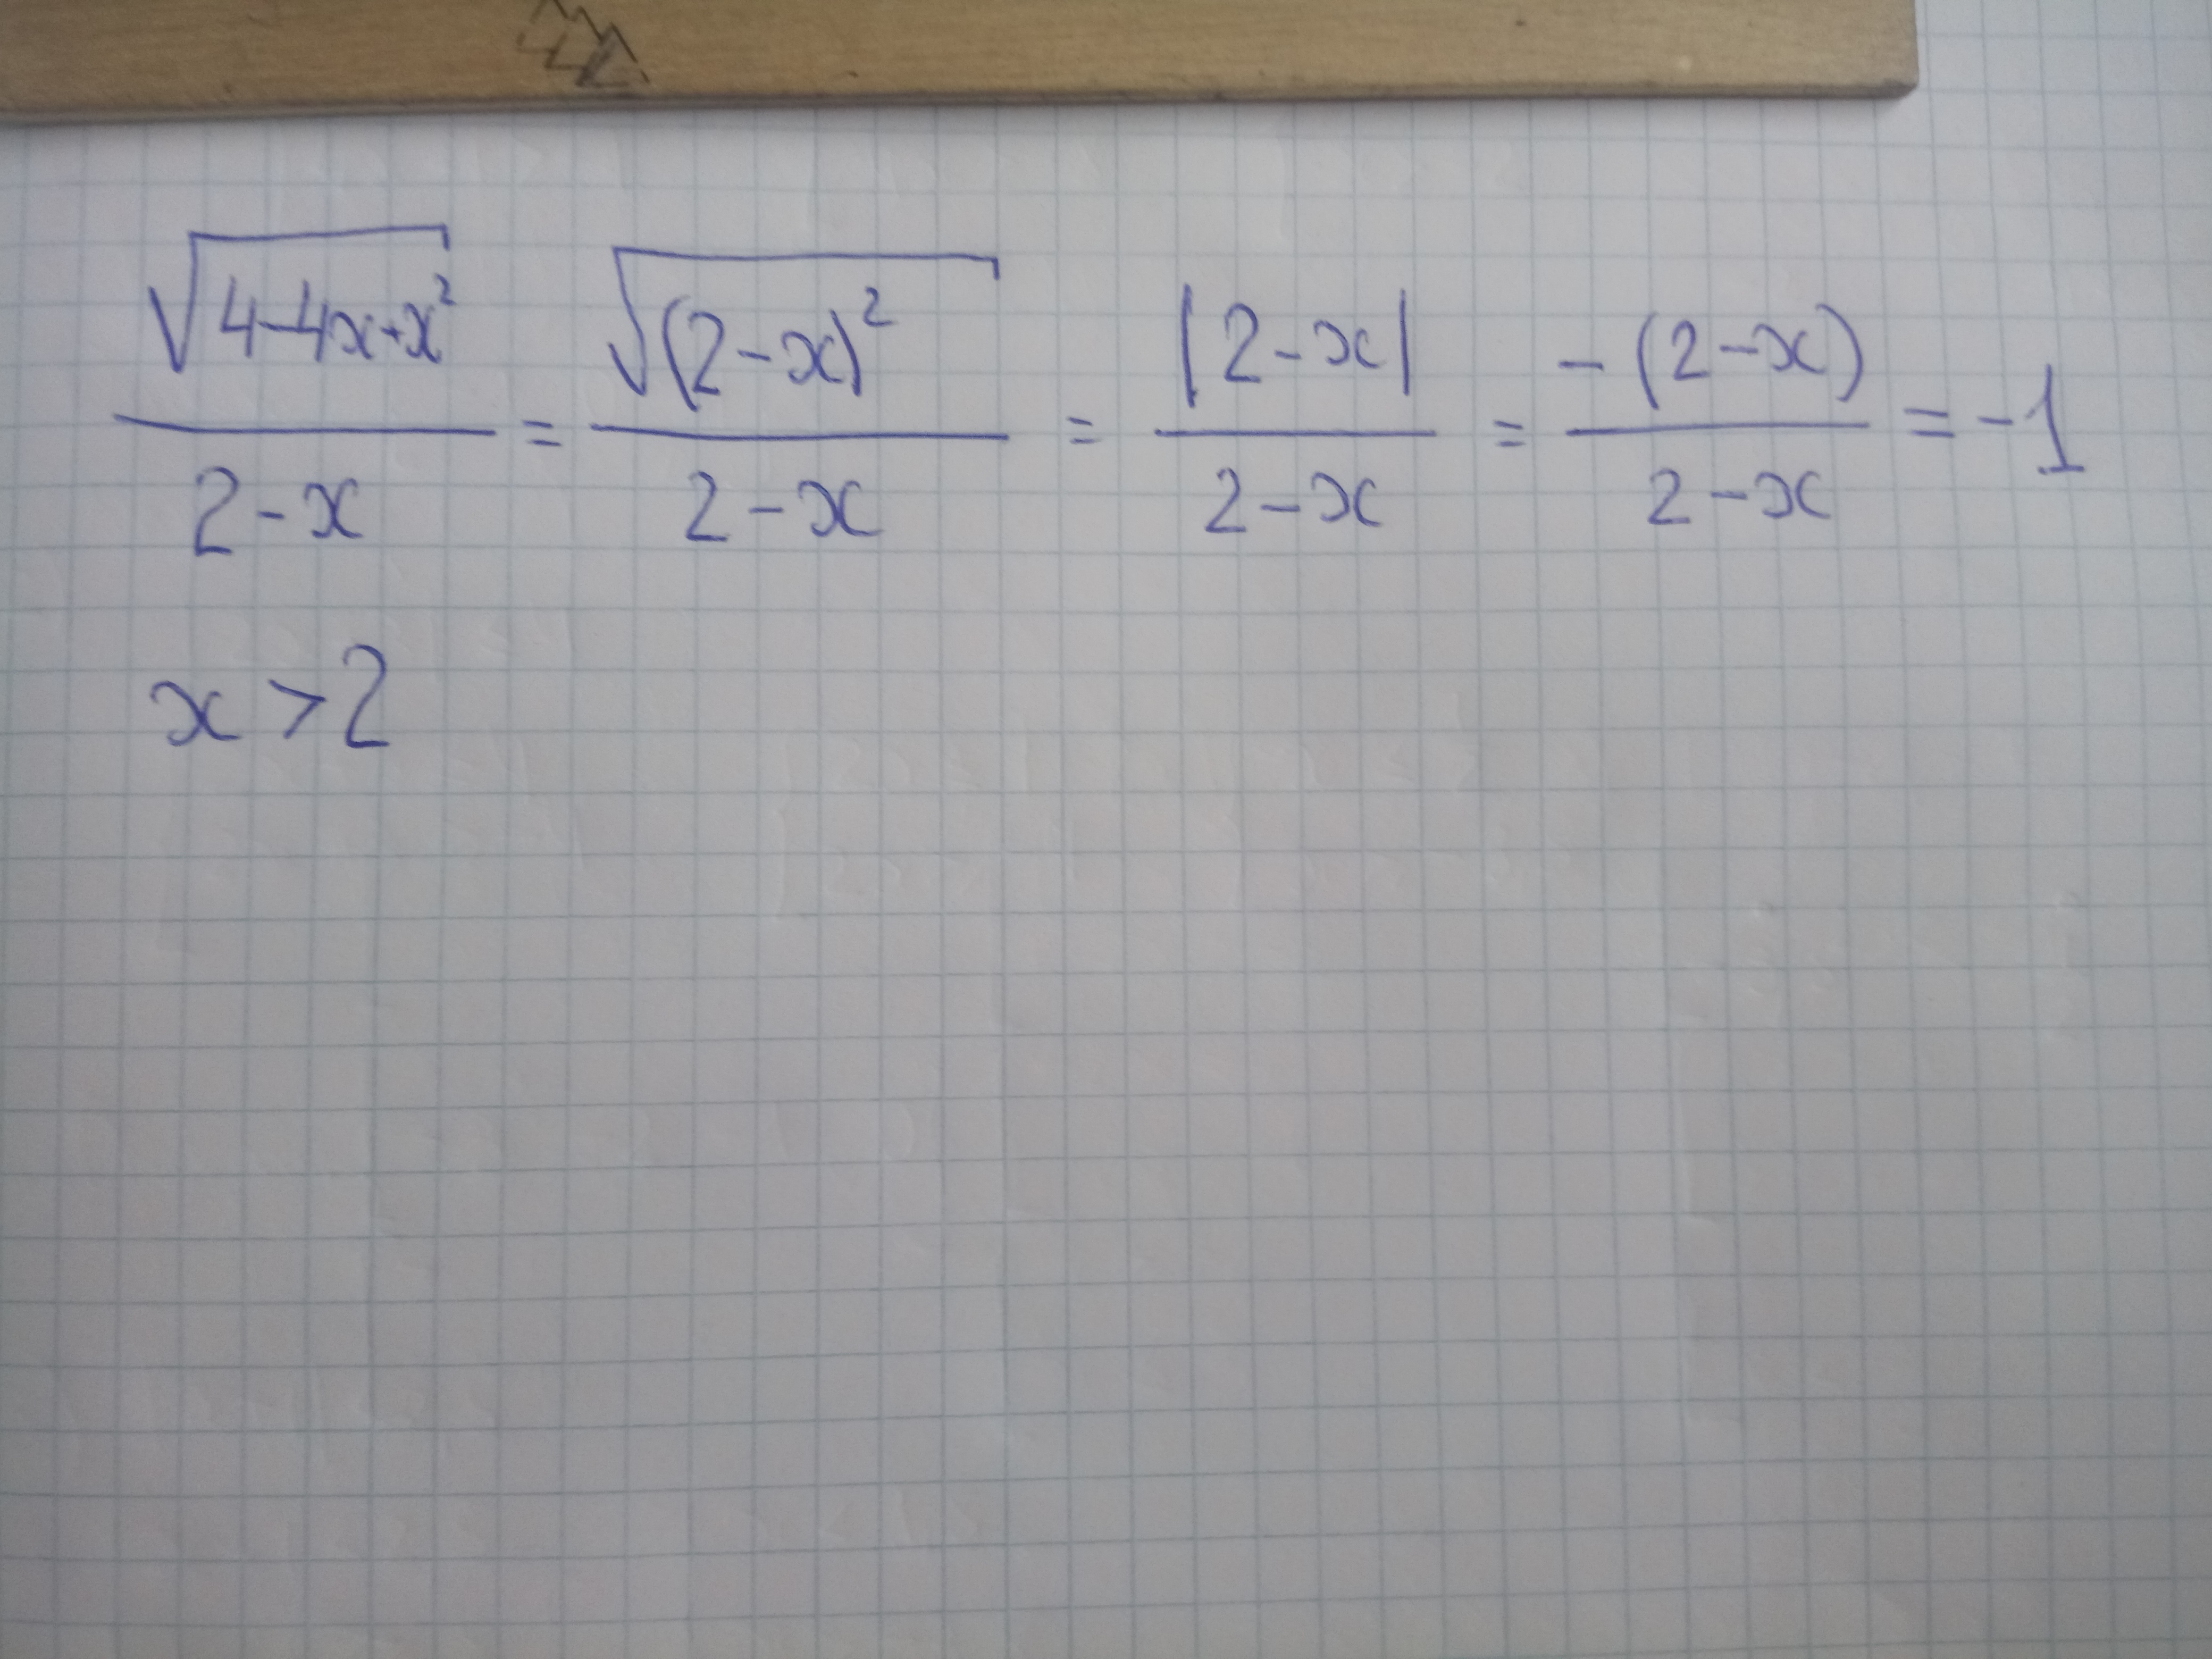 √(4-4x+x²)/(2-x) = √((2-x)²)/(2-x) = |2-x|/(2-x) = -(2-x)/(2-x) = -1
x > 2